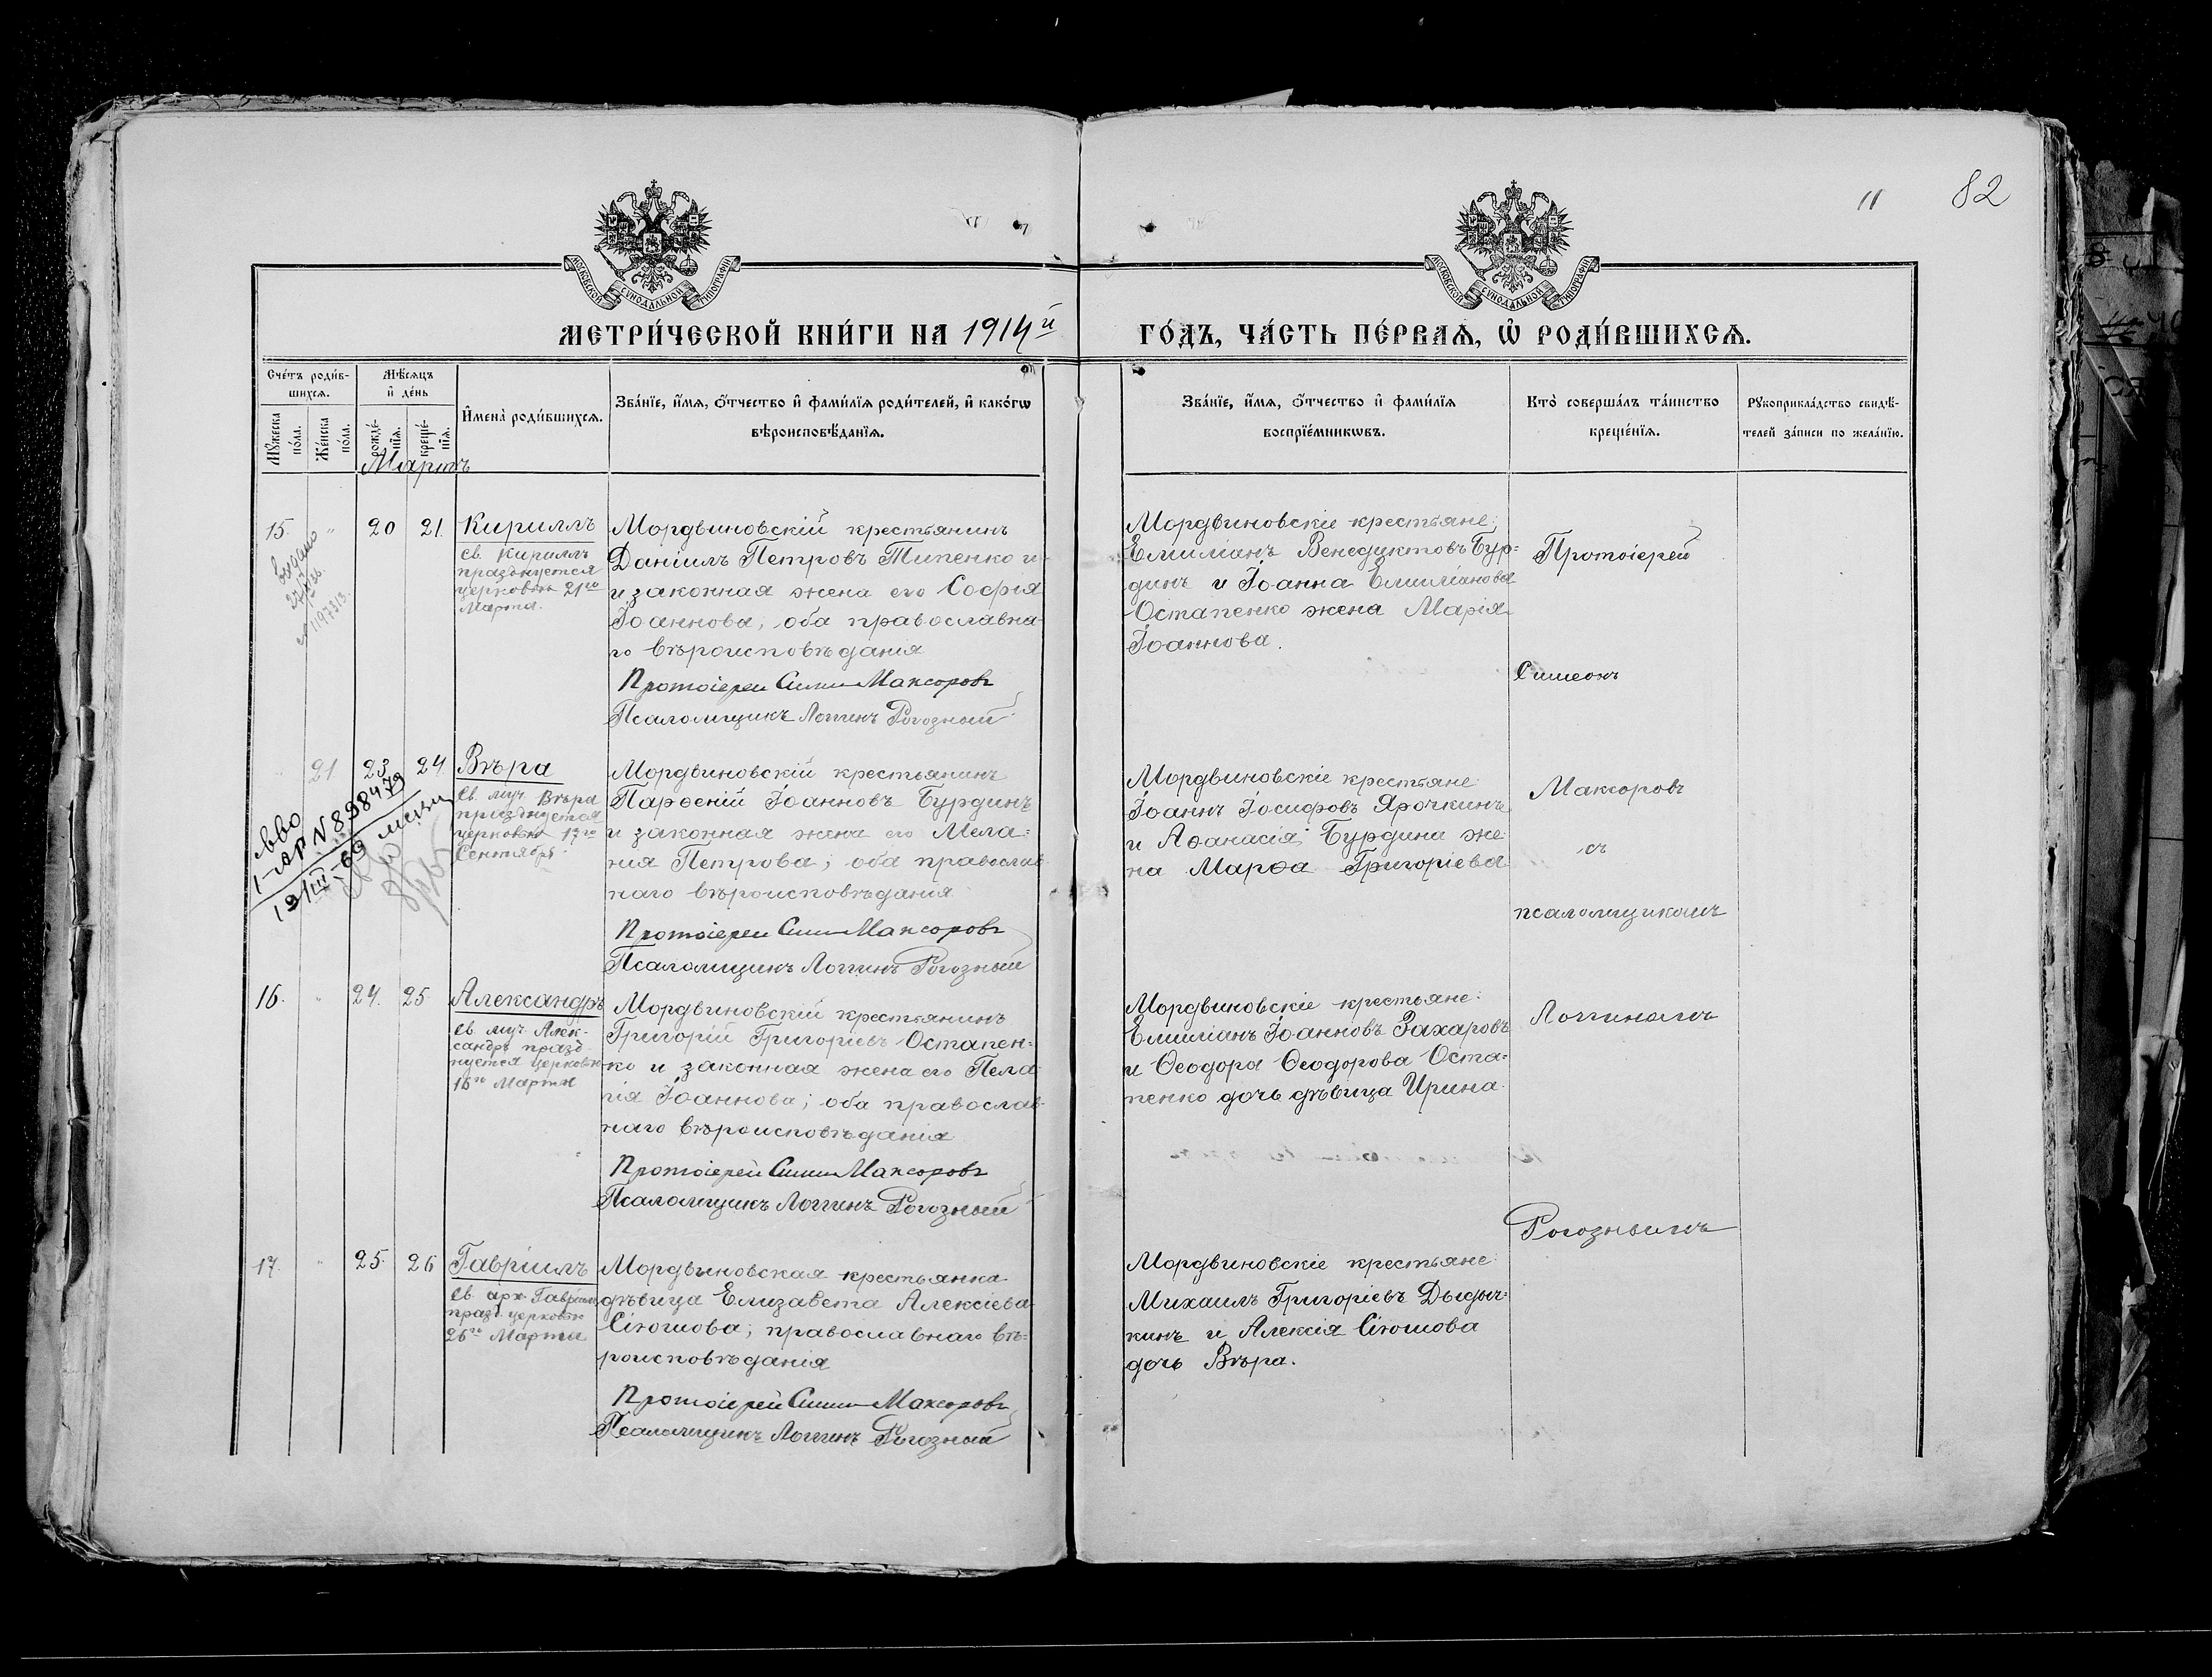 11 82
МОСКОВСКОЙ СѴНОДАЛЬНОЙ ТИПОГРАФІИ
МОСКОВСКОЙ СѴНОДАЛЬНОЙ ТИПОГРАФІИ
МЕТРИ́ЧЕСКОЙ КНИ́ГИ НА 1914й
ГО́ДЪ, ЧА́СТЬ ПЕ́РВАѦ, Ѡ҆ РОДИ́ВШИХСѦ.
Сче́тъ роди́в-
шихсѧ.
Мꙋ́жеска
по́ла.
Же́нска
по́ла.
Мѣ́сѧцъ
и҆ де́нь
рожде́-
нїѧ.
креще́-
нїѧ.
И҆мена̀ роди́вшихсѧ.
Зва́нїе, и҆́мѧ, ѻ҆́тчество и҆ фами́лїѧ роди́телей, и҆ како́гѡ
вѣроисповѣ́данїѧ.
Зва́нїе, и҆́мѧ, ѻ҆́тчество и҆ фами́лїѧ
воспрїе́мникѡвъ.
Кто̀ соверша́лъ та́инство
креще́нїѧ.
Рꙋкоприкла́дство свидѣ́-
телей за́писи по жела́нїю.
Мартъ
15. " 20 21. Кириллъ
св. Кириллъ
празднуется
церковью 21го
Марта.
Мордвиновскій крестьянинъ
Даніилъ Петровъ Типенко и
и законная жена его Софія
Іоаннова; оба православна-
го вѣроисповѣданія
Протоіерей Симе Максоровъ
Псаломщикъ Логгинъ Рогозный
Мордвиновскіе крестьяне;
Емиліанъ Венедиктовъ Бур-
динъ и Іоанна Емиліанова
Остапенко жена Марія
Іоаннова.
Протоіерей
Симеонъ
Максоровъ
съ
псаломщикомъ
Логгиномъ
Рогознымъ
21 23 24 Вѣра
св. муч. Вѣра
празднуется
церковью 17го
Сентября.
N 898479
Мордвиновскій крестьянинъ
Парѳеній Іоанновъ Бурдинъ
и законная жена его Мела-
нія Петрова; оба православ
наго вѣроисповѣданія
Протоіерей Симе Максоровъ
Псаломщикъ Логгинъ Рогозный
Мордвиновскіе крестьяне
Іоаннъ Іосифовъ Ярочкинъ
и Аѳанасія Бурдина же-
на Марѳа Григоріева
16. " 24. 25 Александръ
св. муч. Алек-
сандръ празд-
нуется церковью
16го Марта
Мордвиновскій крестьянинъ
Григорій Григорьевъ Остапен-
ко и законная жена его Пела
гія Іоаннова; оба православ-
наго вѣроисповѣданія
Протоіерей Симе Максоровъ
Псаломщикъ Логгинъ Рогозный
Мордвиновскіе крестьяне:
Емиліанъ Іоанновъ Захаровъ
и Ѳеодора Ѳеодорова Оста-
пенко дочь дѣвица Ирина.
17. " 25. 26 Гавріилъ
св. арх. Гавріилъ
празд. церковью
26го Марта
Мордвиновская крестьянка
дѣвица Елизавета Алексіева
Сіюшова; православнаго вѣ-
роисповѣданія
Протоіерей Симе Максоровъ
Псаломщикъ Логгинъ Рогозный
Мордвиновскіе крестьяне
Михаилъ Григоріевъ Дыдыч-
кинъ и Алексія Сіюшова
дочь Вѣра.